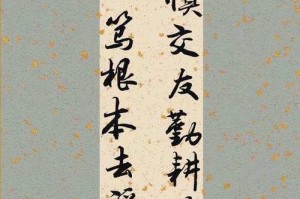 慎交友勤耕
笃根本去浮